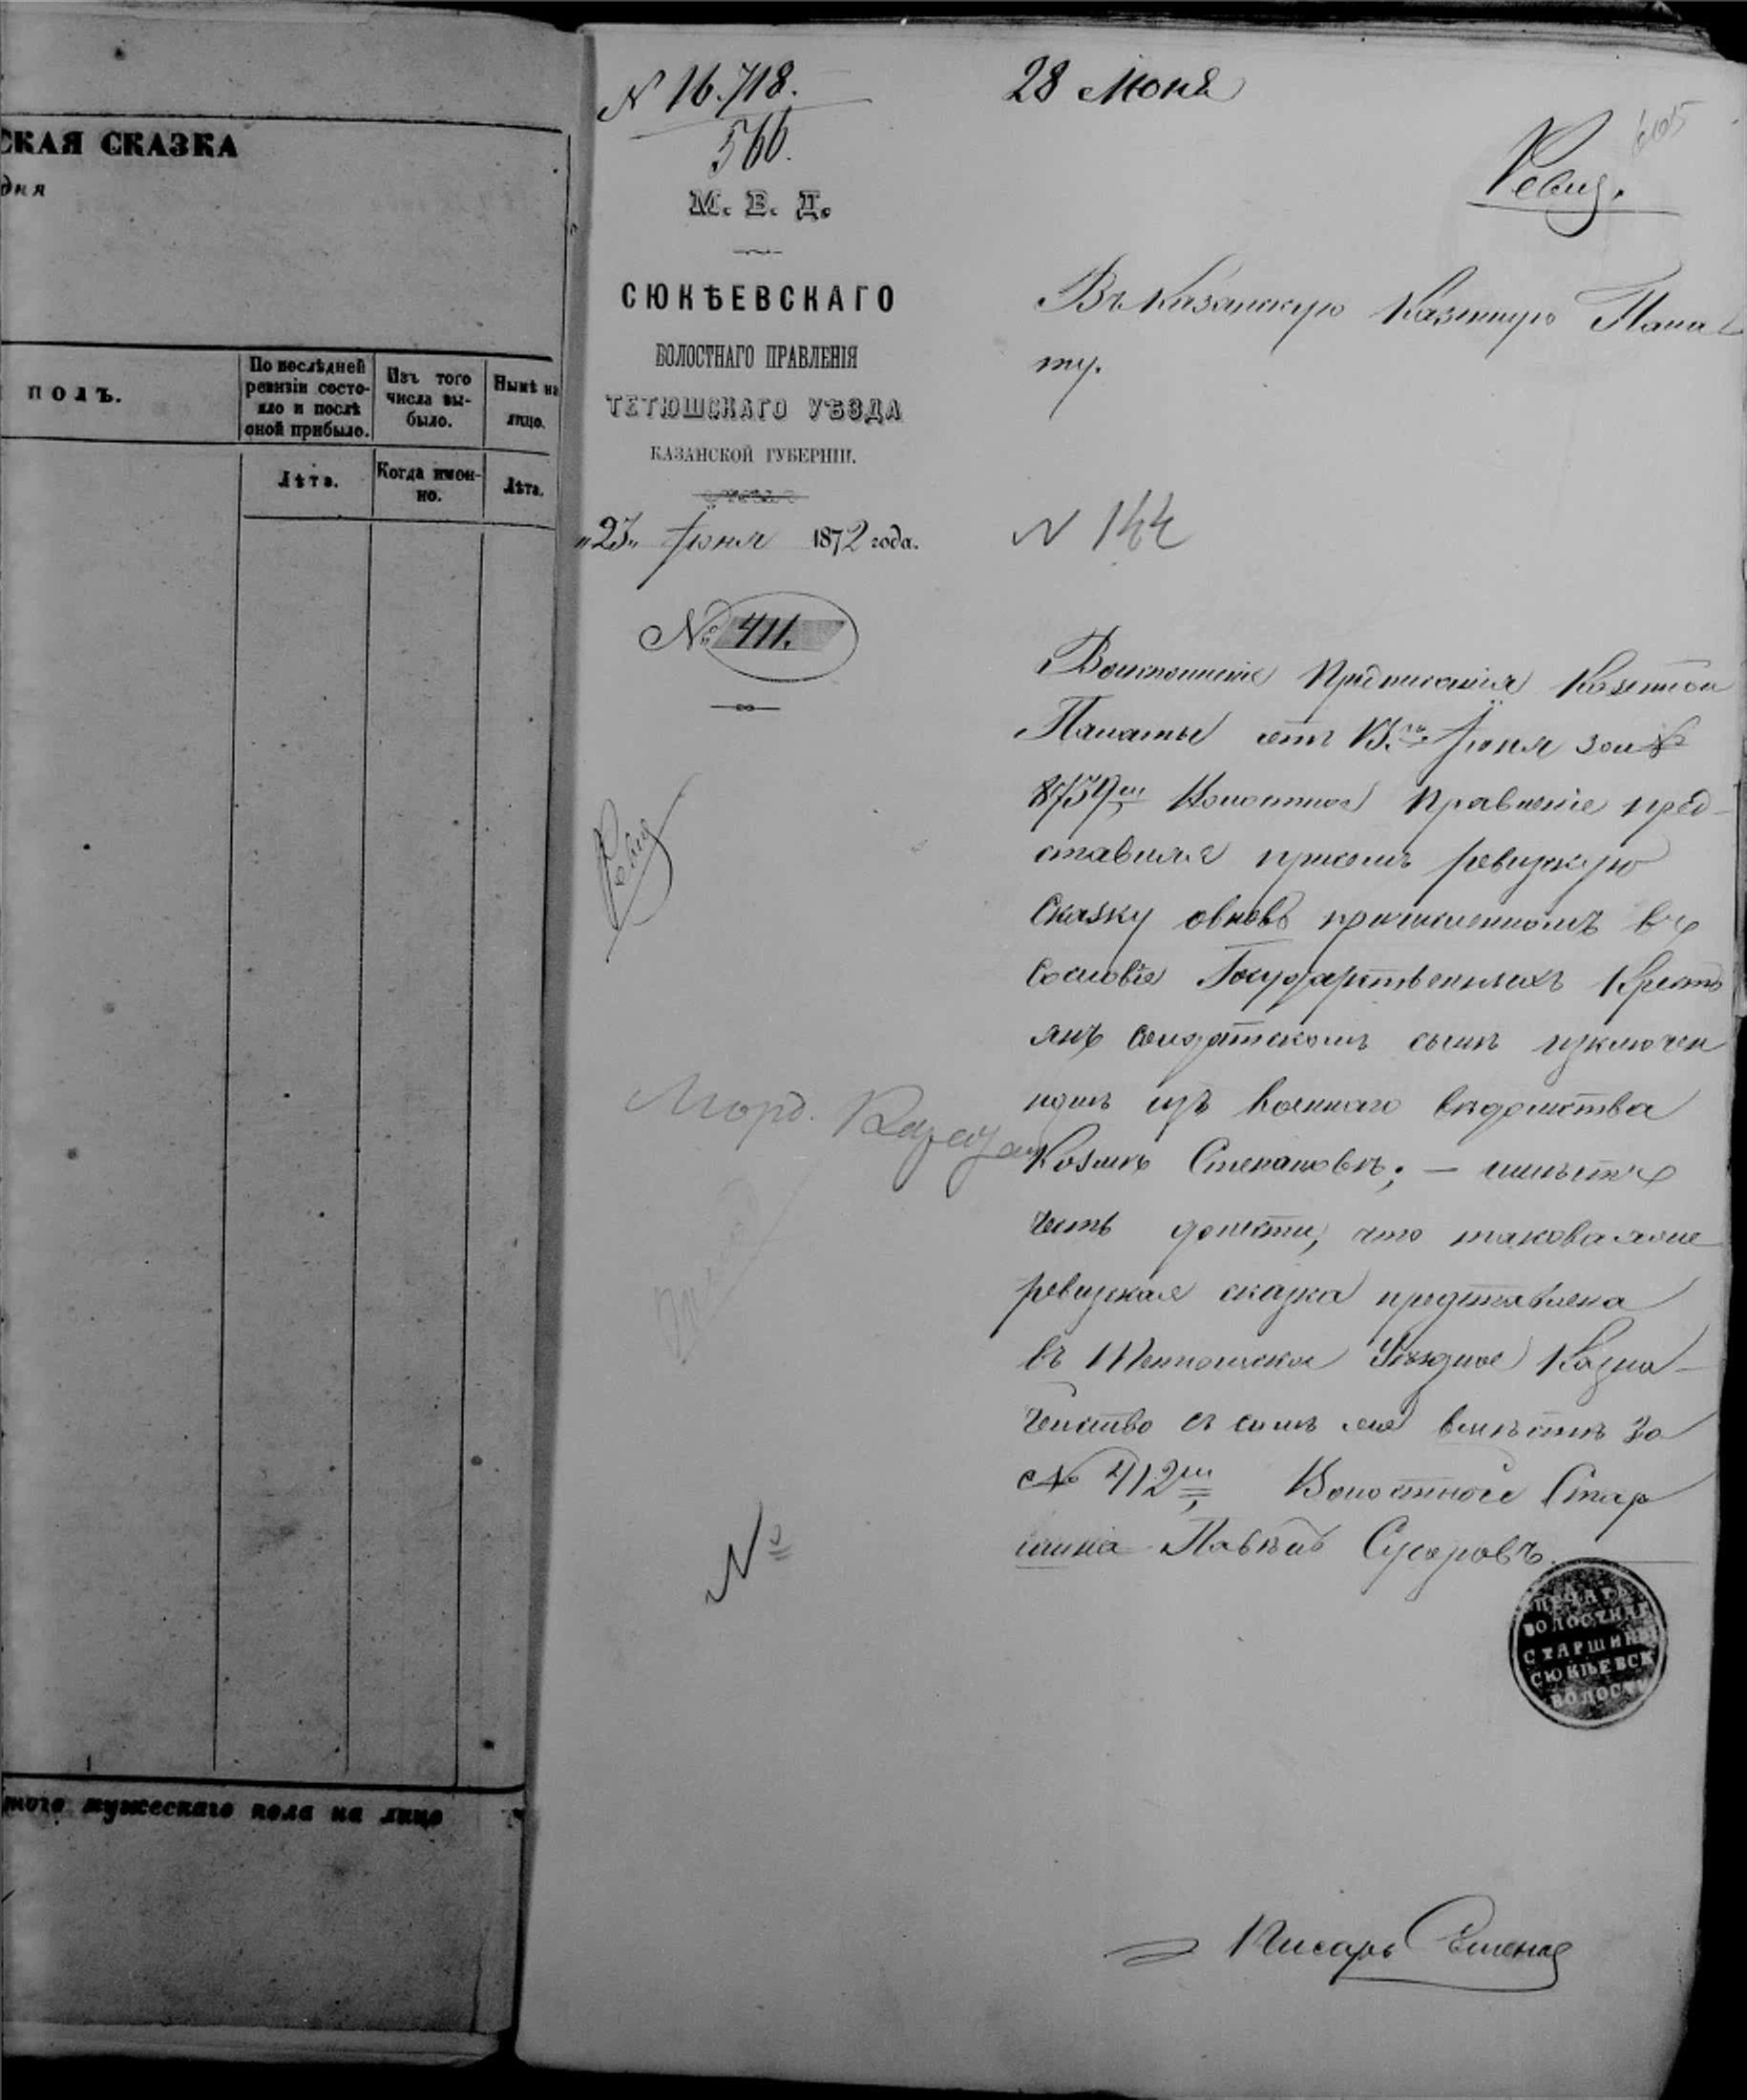 СКАЯ СКАЗКА
дня
ПОЛЪ.
По послѣдней ревизіи состо-
яло и послѣ
оной прибыло.
Изъ того
числа вы-
было.
Нынѣ на
лицо.
Лѣта.
Когда имен-
но.
Лѣта.
того мужескаго пола на лицо
N 16.718.
566.
М. В. Д.
СЮКѢЕВСКАГО
ВОЛОСТНАГО ПРАВЛЕНІЯ
ТЕТЮШСКАГО УѢЗДА
КАЗАНСКОЙ ГУБЕРНІИ.
„23„ Іюня 1872 года.
№ 411.
Ревиз
Морд.
№
28 Июня
605
Ревиз.
Въ Казанскую Казенную Пала-
ту.
N 144
Воисполненіе Предписанія Казенной
Палаты отъ 13.го Іюня за №
8739м Волостное Правленіе пред-
ставляя присемъ ревизскую
Сказку овновь причисленномъ въ
Сословіе Государственныхъ Кресть
янъ солдатскомъ сынѣ изключен
номъ изъ Военнаго вѣдомства
Козьмѣ Степановѣ; — имѣетъ
честь донести, что таковая же
ревизская сказка представлена
въ Тетюшское Уѣздное Казна-
чейство съ симъ же вмѣстѣ за
№ 412м, Волостной Стар
шина Павелъ Суворовъ
ПЕЧАТЬ
ВОЛОСТНАГ
СТАРШИНЫ
СЮКѢЕВСК
ВОЛОСТИ
Писарь